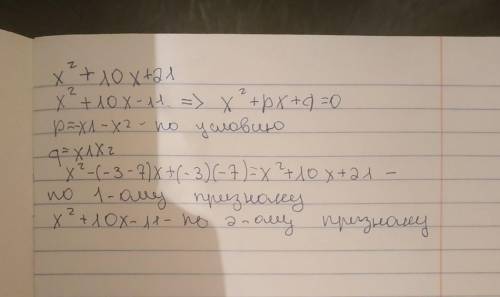 x² + 10x + 21
x² + 10x - 11 => x² + px + q = 0
p = -x1 - x2 - по условию
q = x1x2
x² - (-3 - 7)x + (-3)(-7) = x² + 10x + 21 -
по 1-ому признаку
x² + 10x - 11 - по 2-ому признаку